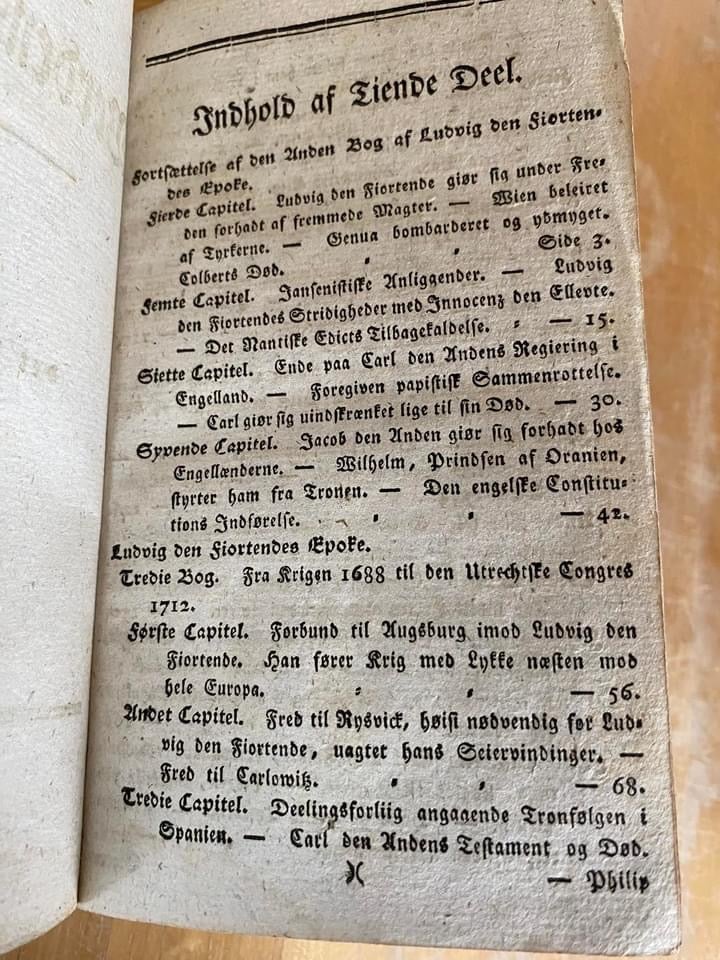 Indhold af Tiende Deel.
Fortsættelse af den Anden Bog af Ludvig den Fiorten-
des Epoke.
Fierde Capitel. Ludvig den Fiortende giør sig under Fre-
den forhadt af fremmede Magter. — Wien beleiret
af Tyrkerne. — Genua bombarderet og ydmyget.
Colberts Død. Side 3.
Femte Capitel. Jansenistiske Anliggender. — Ludvig
den Fiortendes Stridigheder med Innocenz den Ellevte.
— Det Nantiske Edicts Tilbagekaldelse. — 15.
Siette Capitel. Ende paa Carl den Andens Regiering i
Engelland. — Foregiven papistisk Sammenrottelse.
— Carl giør sig uindskrænket lige til sin Død. — 30.
Syvende Capitel. Jacob den Anden giør sig forhadt hos
Engellænderne. — Wilhelm, Prindsen af Oranien,
styrter ham fra Tronen. — Den engelske Constitu-
tions Indførelse. — 42.
Ludvig den Fiortendes Epoke.
Tredie Bog. Fra Krigen 1688 til den Utrechtske Congres
1712.
Første Capitel. Forbund til Augsburg imod Ludvig den
Fiortende. Han fører Krig med Lykke næsten mod
hele Europa. — 56.
Andet Capitel. Fred til Rysvick, høist nødvendig for Lud-
vig den Fiortende, uagtet hans Seiervindinger. —
Fred til Carlowitz. — 68.
Tredie Capitel. Deelingsforliig angaaende Tronfølgen i
Spanien. — Carl den Andens Testament og Død.
— Philip